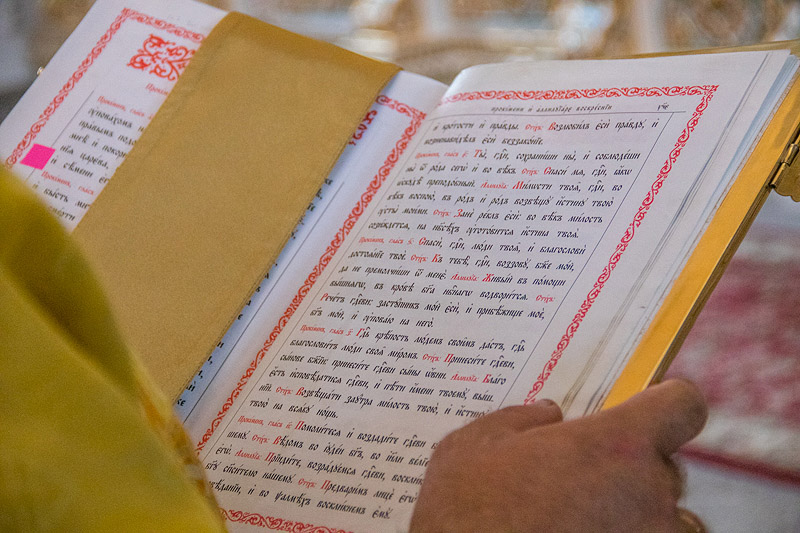 Прокі́менъ, гла́съ
ᲂу҆пова́хомъ
пра́вымъ
мѧ̀ и҆
царе́ва,
и҆ сѣ́мени є҆гѡ̀
Прокі́менъ, гла́съ
бы́сть
прокі́мены и҆ а҆ллилꙋїа́ре воскрⷭ҇ны
и҆ кро́тости и҆ пра́вды. Сті́хъ: Возлюби́лъ є҆сѝ пра́вдꙋ, и҆
возненави́дѣлъ є҆сѝ беззако́нїе.
Прокі́менъ, гла́съ д҃: Ты̀, гдⷭ҇и, сохрани́ши ны̀, и҆ соблюде́ши
ны̀ ѿ ро́да сегѡ̀ и҆ во вѣ́къ. Сті́хъ: Спаси́ мѧ, гдⷭ҇и, ꙗ҆́кѡ
ѡ҆скꙋдѣ̀ преподо́бный. А҆ллилꙋ́їа: Ми́лѡсти твоѧ̑, гдⷭ҇и, во
вѣ́къ воспою̀, въ ро́дъ и҆ ро́дъ возвѣщꙋ̀ и҆́стинꙋ твою̀
ᲂу҆сты̑ мои́ми. Сті́хъ: Занѐ ре́клъ є҆сѝ: во вѣ́къ ми́лость
сози́ждетсѧ, на нб҃сѣ́хъ ᲂу҆гото́витсѧ и҆́стина твоѧ̀.
Прокі́менъ, гла́съ ѕ҃: Спасѝ, гдⷭ҇и, лю́ди твоѧ̑, и҆ благословѝ
достоѧ́нїе твоѐ. Сті́хъ: Къ тебѣ̀, гдⷭ҇и, воззовꙋ̀, бж҃е мо́й,
да не премолчи́ши ѿ менє̀. А҆ллилꙋ́їа: Живы́й въ по́мощи
вы́шнѧгѡ, въ кро́вѣ бг҃а нбⷭ҇нагѡ водвори́тсѧ. Сті́хъ:
Рече́тъ гдⷭ҇еви: застꙋ́пникъ мо́й є҆сѝ, и҆ прибѣ́жище моѐ,
бг҃ъ мо́й, и҆ ᲂу҆пова́ю на него̀.
Прокі́менъ, гла́съ з҃: Гдⷭ҇ь крѣ́пость лю́демъ свои̑мъ да́стъ, гдⷭ҇ь
благослови́тъ лю́ди своѧ̑ ми́ромъ. Сті́хъ: Принеси́те гдⷭ҇еви,
сы́нове бж҃їи: принеси́те гдⷭ҇еви сы́ны ѡ҆́вни. А҆ллилꙋ́їа: Бла́го
є҆́сть и҆сповѣ́датисѧ гдⷭ҇еви, и҆ пѣ́ти и҆́мени твоемꙋ̀, вы́ш
нїй. Сті́хъ: Возвѣща́ти заꙋ́тра ми́лость твою̀, и҆ и҆́стинꙋ
твою̀ на всѧ́кꙋ но́щь.
Прокі́менъ, гла́съ и҃: Помоли́тесѧ и҆ воздади́те гдⷭ҇еви
шемꙋ. Сті́хъ: Вѣ́домъ во і҆ꙋде́и бг҃ъ, во і҆и҃ли ве́лїе
А҆ллилꙋ́їа: Прїиди́те, возра́дꙋемсѧ гдⷭ҇еви, воскли́кнемъ
бг҃ꙋ сп҃си́телю на́шемꙋ. Сті́хъ: Предвари́мъ лицѐ є҆гѡ̀
вѣ́данїи, и҆ во ѱалмѣ́хъ воскли́кнемъ є҆мꙋ̀.